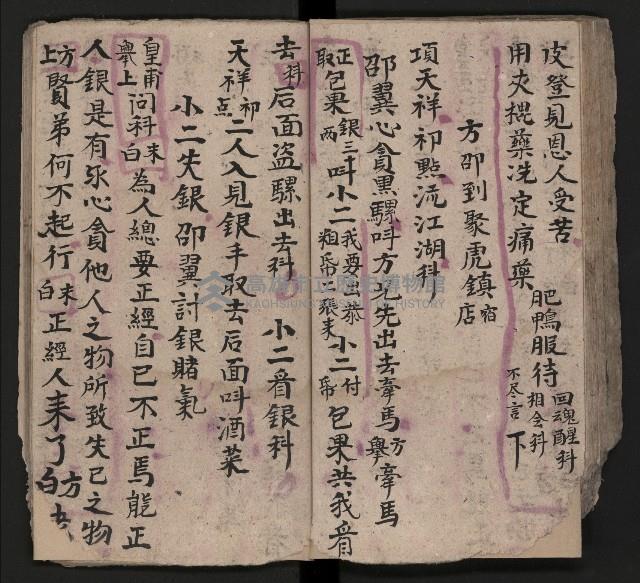 皮登見恩人受苦
用夾棍藥洗定痛藥 肥鴨服待 回魂醒科 相会科 不尽言 下
方卲到聚虎鎮 宿店
項天祥祁點流江湖科
卲翼心貪黒騾呌方 先出去牽馬 方舉 牽馬
正取包果 銀三十両 呌小二 我要出恭 粗帋張来 小二 付帋 包果共我看
去科后面盗騾出去科 小二看銀科
天祥祁点二人入見銀手取去后面呌酒菜
小二失銀卲翼討銀賭氣
皇甫舉上问科 末白 為人總要正經自已不正焉能正
人銀是有 心貪他人之物所致失已之物
方上賢弟何不起行 末白 正經人来了 方白 去
高雄市立歷史博物館
KAOHSIUNG MUSEUM OF HISTORY